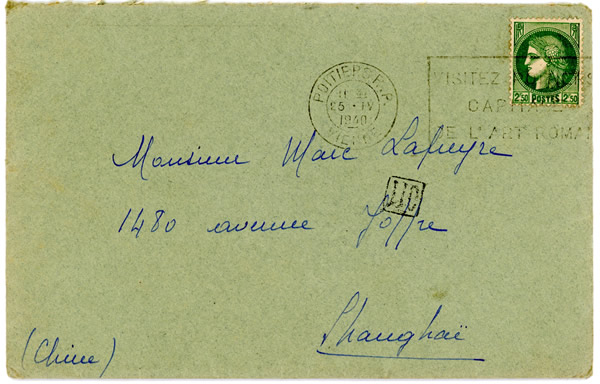 POITIERS R.P.
25 · IV
1940
VIENNE
VISITEZ
CAPITALE
DE L'ART ROMAN
RF
2.50 POSTES 2.50
Monsieur Marc Lapeyre
JJC
1480 avenue Joffre
Shanghaï
(Chine)